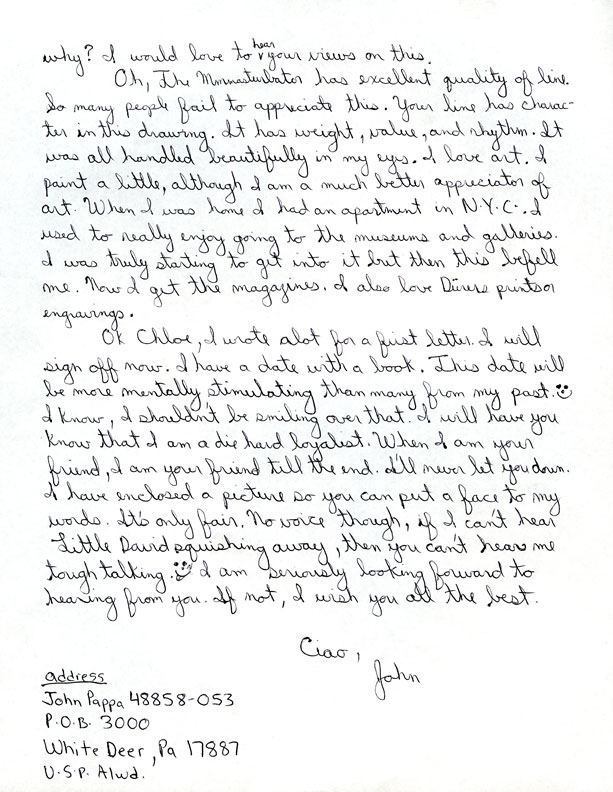 why? I would love to hear your views on this.
Oh, The Mmmasturbator has excellent quality of line.
So many people fail to appreciate this. Your line has charac-
ter in this drawing. It has weight, value, and rhythm. It
was all handled beautifully in my eyes. I love art. I
paint a little, although I am a much better appreciator of
art. When I was home I had an apartment in N.Y.C.. I
used to really enjoy going to the museums and galleries.
I was truly starting to get into it but then this befell
me. Now I get the magazines. I also love Dürers prints or
engravings.
Ok Chloe, I wrote alot for a first letter. I will
sign off now. I have a date with a book. This date will
be more mentally stimulating than many from my past.
I know, I shouldn't be smiling over that. I will have you
know that I am a die hard loyalist. When I am your
friend, I am your friend till the end. I'll never let you down.
I have enclosed a picture so you can put a face to my
words. It's only fair. No voice though, if I can't hear
Little David squishing away, then you can't hear me
tough talking. I am seriously looking forward to
hearing from you. If not, I wish you all the best.
Ciao,
John
address
John Pappa 48858-053
P.O.B. 3000
White Deer, Pa 17887
U.S.P. Alwd.